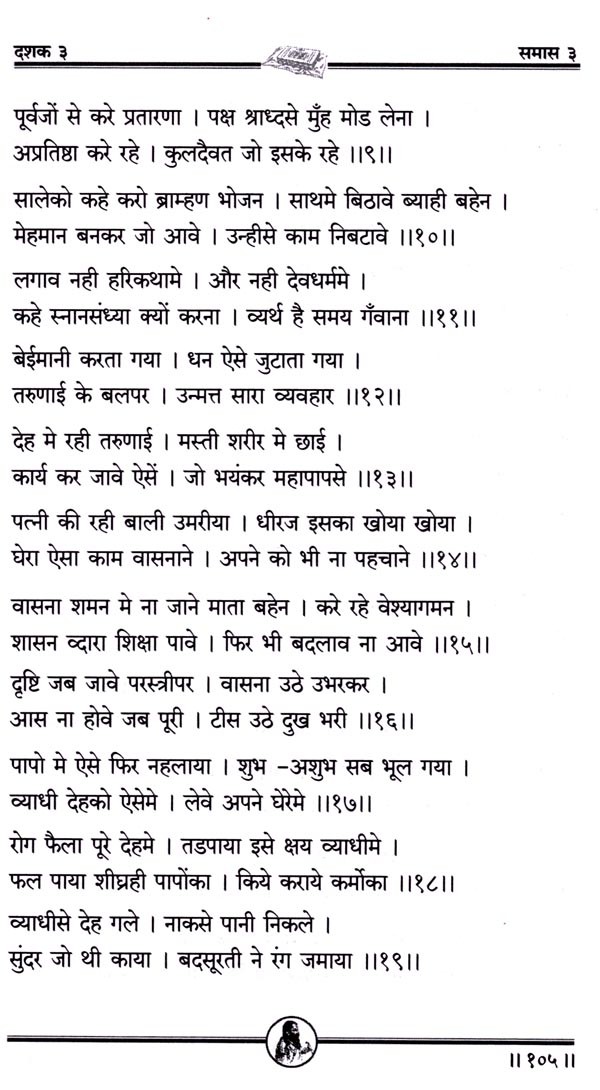 दशक ३
समास ३
पूर्वजों से करे प्रतारणा । पक्ष श्राध्दसे मुँह मोड लेना ।
अप्रतिष्ठा करे रहे । कुलदैवत जो इसके रहे ।।९।।
सालेको कहे करो ब्राम्हण भोजन । साथमे बिठावे ब्याही बहेन ।
मेहमान बनकर जो आवे । उन्हीसे काम निबटावे ।।१०।।
लगाव नही हरिकथामे । और नही देवधर्ममे ।
कहे स्नानसंध्या क्यों करना । व्यर्थ है समय गँवाना ।।११।।
बेईमानी करता गया । धन ऐसे जुटाता गया ।
तरुणाई के बलपर । उन्मत्त सारा व्यवहार ।।१२।।
देह मे रही तरुणाई । मस्ती शरीर मे छाई ।
कार्य कर जावे ऐसें । जो भयंकर महापापसे ।।१३।।
पत्नी की रही बाली उमरीया । धीरज इसका खोया खोया ।
घेरा ऐसा काम वासनाने । अपने को भी ना पहचाने ।।१४।।
वासना शमन मे ना जाने माता बहेन । करे रहे वेश्यागमन ।
शासन व्दारा शिक्षा पावे । फिर भी बदलाव ना आवे ।।१५।।
दृष्टि जब जावे परस्त्रीपर । वासना उठे उभरकर ।
आस ना होवे जब पूरी । टीस उठे दुख भरी ।।१६।।
पापो मे ऐसे फिर नहलाया । शुभ -अशुभ सब भूल गया ।
व्याधी देहको ऐसेमे । लेवे अपने घेरेमे ।।१७।।
रोग फैला पूरे देहमे । तडपाया इसे क्षय व्याधीमे ।
फल पाया शीघ्रही पापोंका । किये कराये कर्मोका ।।१८।।
व्याधीसे देह गले । नाकसे पानी निकले ।
सुंदर जो थी काया । बदसूरती ने रंग जमाया ।।१९।।
।। १०५ ।।